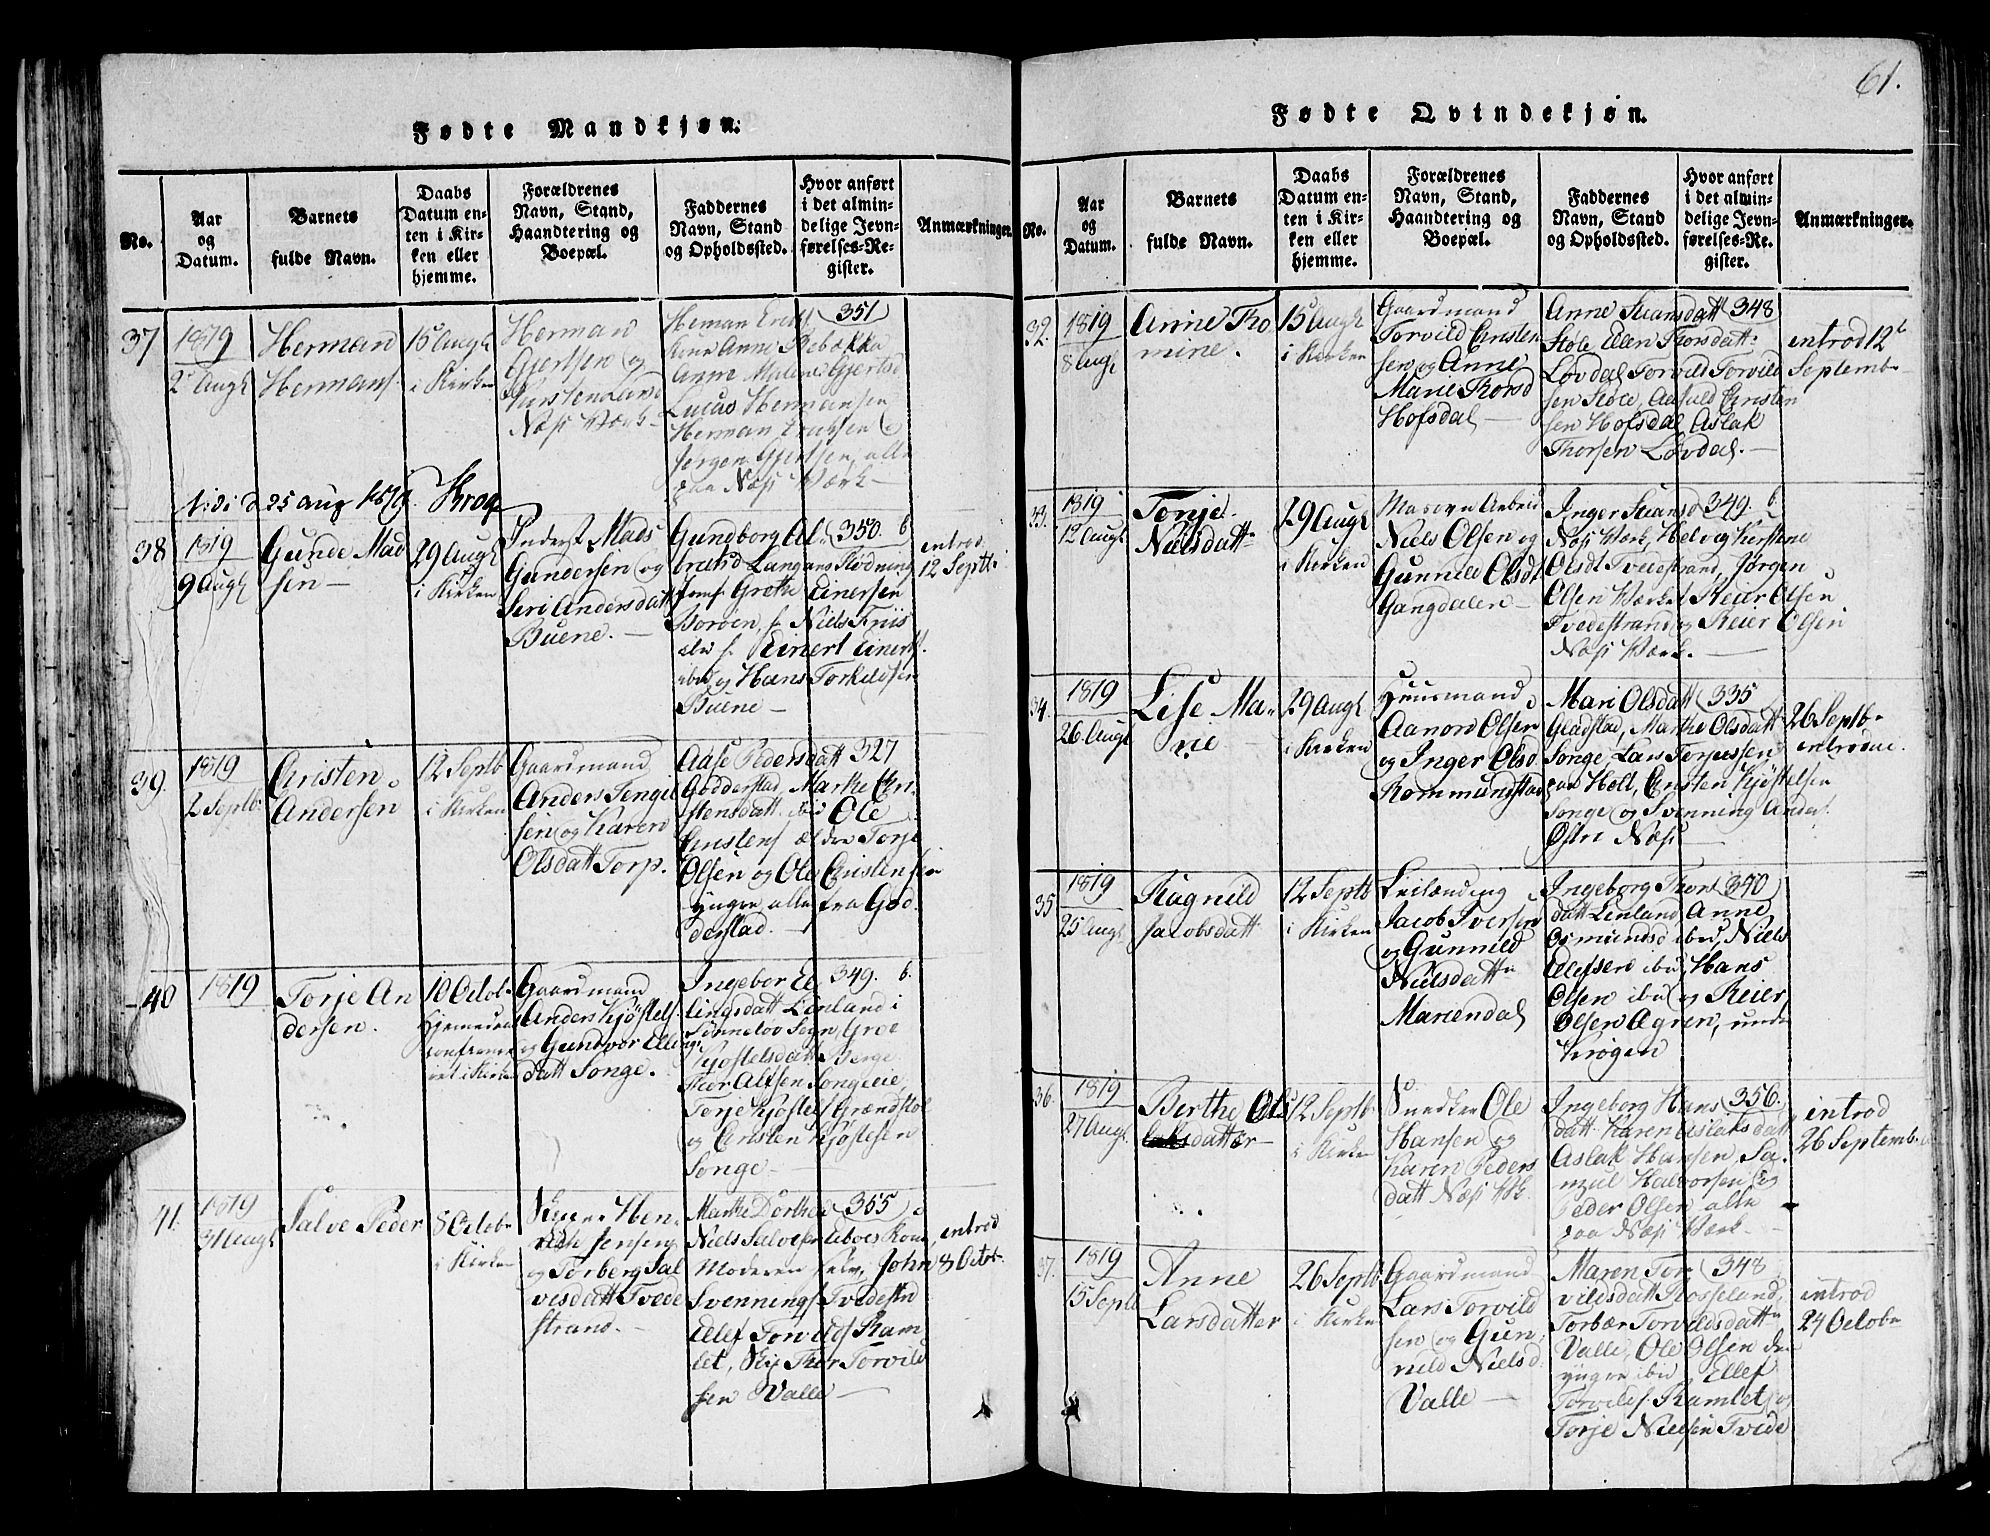 61.
Fødte Mandkjøn.
No.
Aar
og
Datum.
Barnets
fulde Navn.
Daabs
Datum en-
ten i Kir-
ken eller
hjemme.
Forældrenes
Navn, Stand,
Haandtering og
Boepæl.
Faddernes
Navn, Stand
og Opholdssted.
Hvor anført
i det almin-
delige Jevn-
førelses-Re-
gister.
Anmærkninger.
37
1819
2 Augl
Herman
Hermans.
15 Augl
i Kirken
Herman
Gjertsen og
Næs Værk
351
Anne Rebækka
Anne Malene Gjertsd
Lucas Hermansen
Herman Ericksen
Jørgen Gjertsen, alle
paa Næs Værk
25 aug 1819. Krog
38
1819
9 Augl
Gunde Mad
sen
29 Augl
i Kirken
Inderst Mads
Gundersen og
Siri Andersdatt
Buene.
Gundborg Al
350. b
Grethe Einersen
Boroen, Niels Friis
Einert Einert
og Hans Torkildsen
Buene
introd.
12 Septt.
39.
1819
2 Septb.
Cristen
Andersen
12 Septb
i Kirken
Gaardmand
Anders Tengil
sen og Karen
Olsdatt Torp.
Aase Pedersdatt 327
Godderstad, Marthe Cri
stensdatt ibid Ole
Cristens ældre Torje
Olsen og Ole Cristensen
yngre, alle fra God
derstad.
40
1819
Torje An
dersen.
10 Octob.
Hjemmed
i Kirken
Gaardmand
Anders Kjøstels
og Gundvor Elling
datt Songe.
Ingebor El
349. b.
lingsdatt Lenland i
Sønneløv Sogn, Groe
Kjøstelsdatt Berge
Songeeie,
Torje Kjøstels Grændstøl
og Cristen Kjøstelsen
Songe
41.
1819
31 Augl
Salve Peder
8 Octob
i Kirken
Hen-
rich Jensen
og Torberg Sal
vesdatt Tvede
strand.
Marthe Dorthea
355
Niels Salvesen
Moderen selv, John
Svennings Tvedestrd
Ellef Torvilds Ram
let, Skip Thor Torvild
sen Valle
introd
8 Octob.
Fødte Qvindekjøn.
No.
Aar
og
Datum.
Barnets
fulde Navn.
Daabs
Datum en-
ten i Kir-
ken eller
hjemme.
Forældrenes
Navn, Stand,
Haandtering og
Boepæl.
Faddernes
Navn, Stand
og Opholdssted.
Hvor anført
i det almin-
delige Jevn-
førelses-Re-
gister.
Anmærkninger.
32.
1819
8 Augl
Anne Tho
mine.
15 Augl
i Kirken
Gaardmand
Torvild Cristen
sen og Anne
Marie Thorsd
Hofsdal
Anne Suansdatt 348
Støle Ellen Thorsdatt
Løvdal Torvild Torvild
sen Støle, Aasuld Cristen
sen Hofsdal Aslak
Thorsen Løvdal.
introd 12
Septemb
33.
1819
12 Augl
Torje
Nielsdatt
29 Augl
i Kirken
Masovn Arbeid
Niels Olsen og
Gunnild Olsdt
Gangdalen
Inger Suansd 349. b.
Næs Værk, Helvig Kirstine
Olsdt Tvedestrand, Jørgen
Olsen Værket Reier Olsen
Tvedestrand og Reier Olsen
Næs Værk.
34.
1819
26 Augl
Lise Ma-
rie
29 Augl
i Kirken
Huusmand
Aanon Olsen
og Inger Olsd
Rommundstad
Mari Olsdatt 335
Gladstad, Marthe Olsdatt
Songe, Lars Torjussen
paa Holt, Cristen Kjøstelsen
Songe og Svenning Anders.
Østre Næs
26 Septb.
introdue.
35
1819
25 Augl
Ragnild
Jacobsdatt
12 Septb
i Kirken
Leilænding
Jacob Iversen
og Gunnild
Nielsdatt
Mariendal
Ingeborg Thors 340
datt Lenland Anne
Osmundsd ibid, Niels
Ellefsen ibid Hans
Olsen ibid og Reier
Olsen Agren, unde
Krøgen
36.
1819
27 Augl.
Berthe Ols
datter
12 Septb
i Kirken
Snedker Ole
Hansen og
Karen Peders
datt Næs Vk.
Ingeborg Hans 356.
datt Karen Aslaksdatt
Aslak Hansen, Sa
muel Halvorsen og
Peder Olsen alle
paa Næs Værk
introd
26 Septemb.
37.
1819
15 Septb
Anne
Larsdatter
26 Septb
i Kirken
Gaardmand
Lars Torvild
sen og Gun
nild Nielsd
Valle
Maren Tor 348
vildsdatt Rosseland,
Torbær Torvildsdatt
Valle, Ole Olsen den
yngre ibid Ellef
Torvilds. Ramlet og
Torje Nielsen Tvede
introd
24 Octob